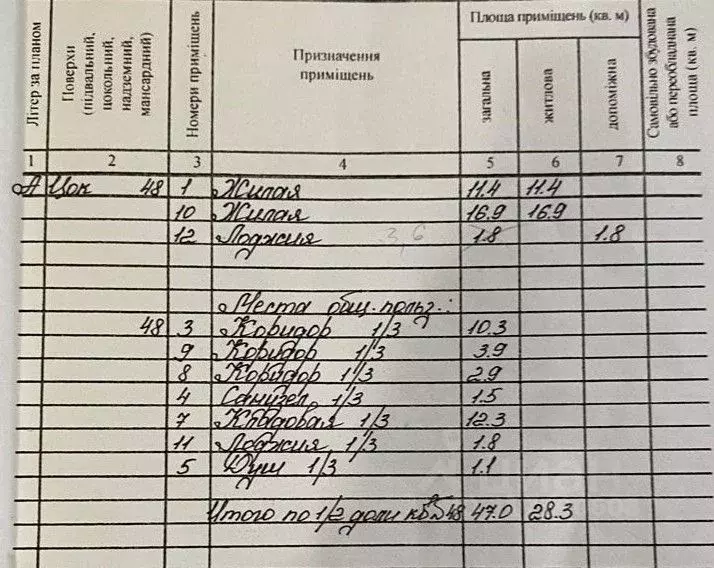 Літер за планом
Поверхи
(підвальний,
цокольний,
надземний,
мансардний)
Номери приміщень
Призначення
приміщень
Площа приміщень (кв. м)
загальна
житлова
допоміжна
Самовільно збудована
або переобладнана
площа (кв. м)
1 2 3 4 5 6 7 8
А Цок 48 1 Жилая 11.4 11.4
10 Жилая 16.9 16.9
12 Лоджия 3,6 1.8 1.8
Места общ. польз.:
48 3 Коридор 1/3 10.3
9 Коридор 1/3 3.9
8 Коридор 1/3 2.9
4 Санузел 1/3 1.5
7 Кладовая 1/3 12.3
11 Лоджия 1/3 1.8
5 Душ 1/3 1.1
Итого по 1/2 доли кв№48 47.0 28.3